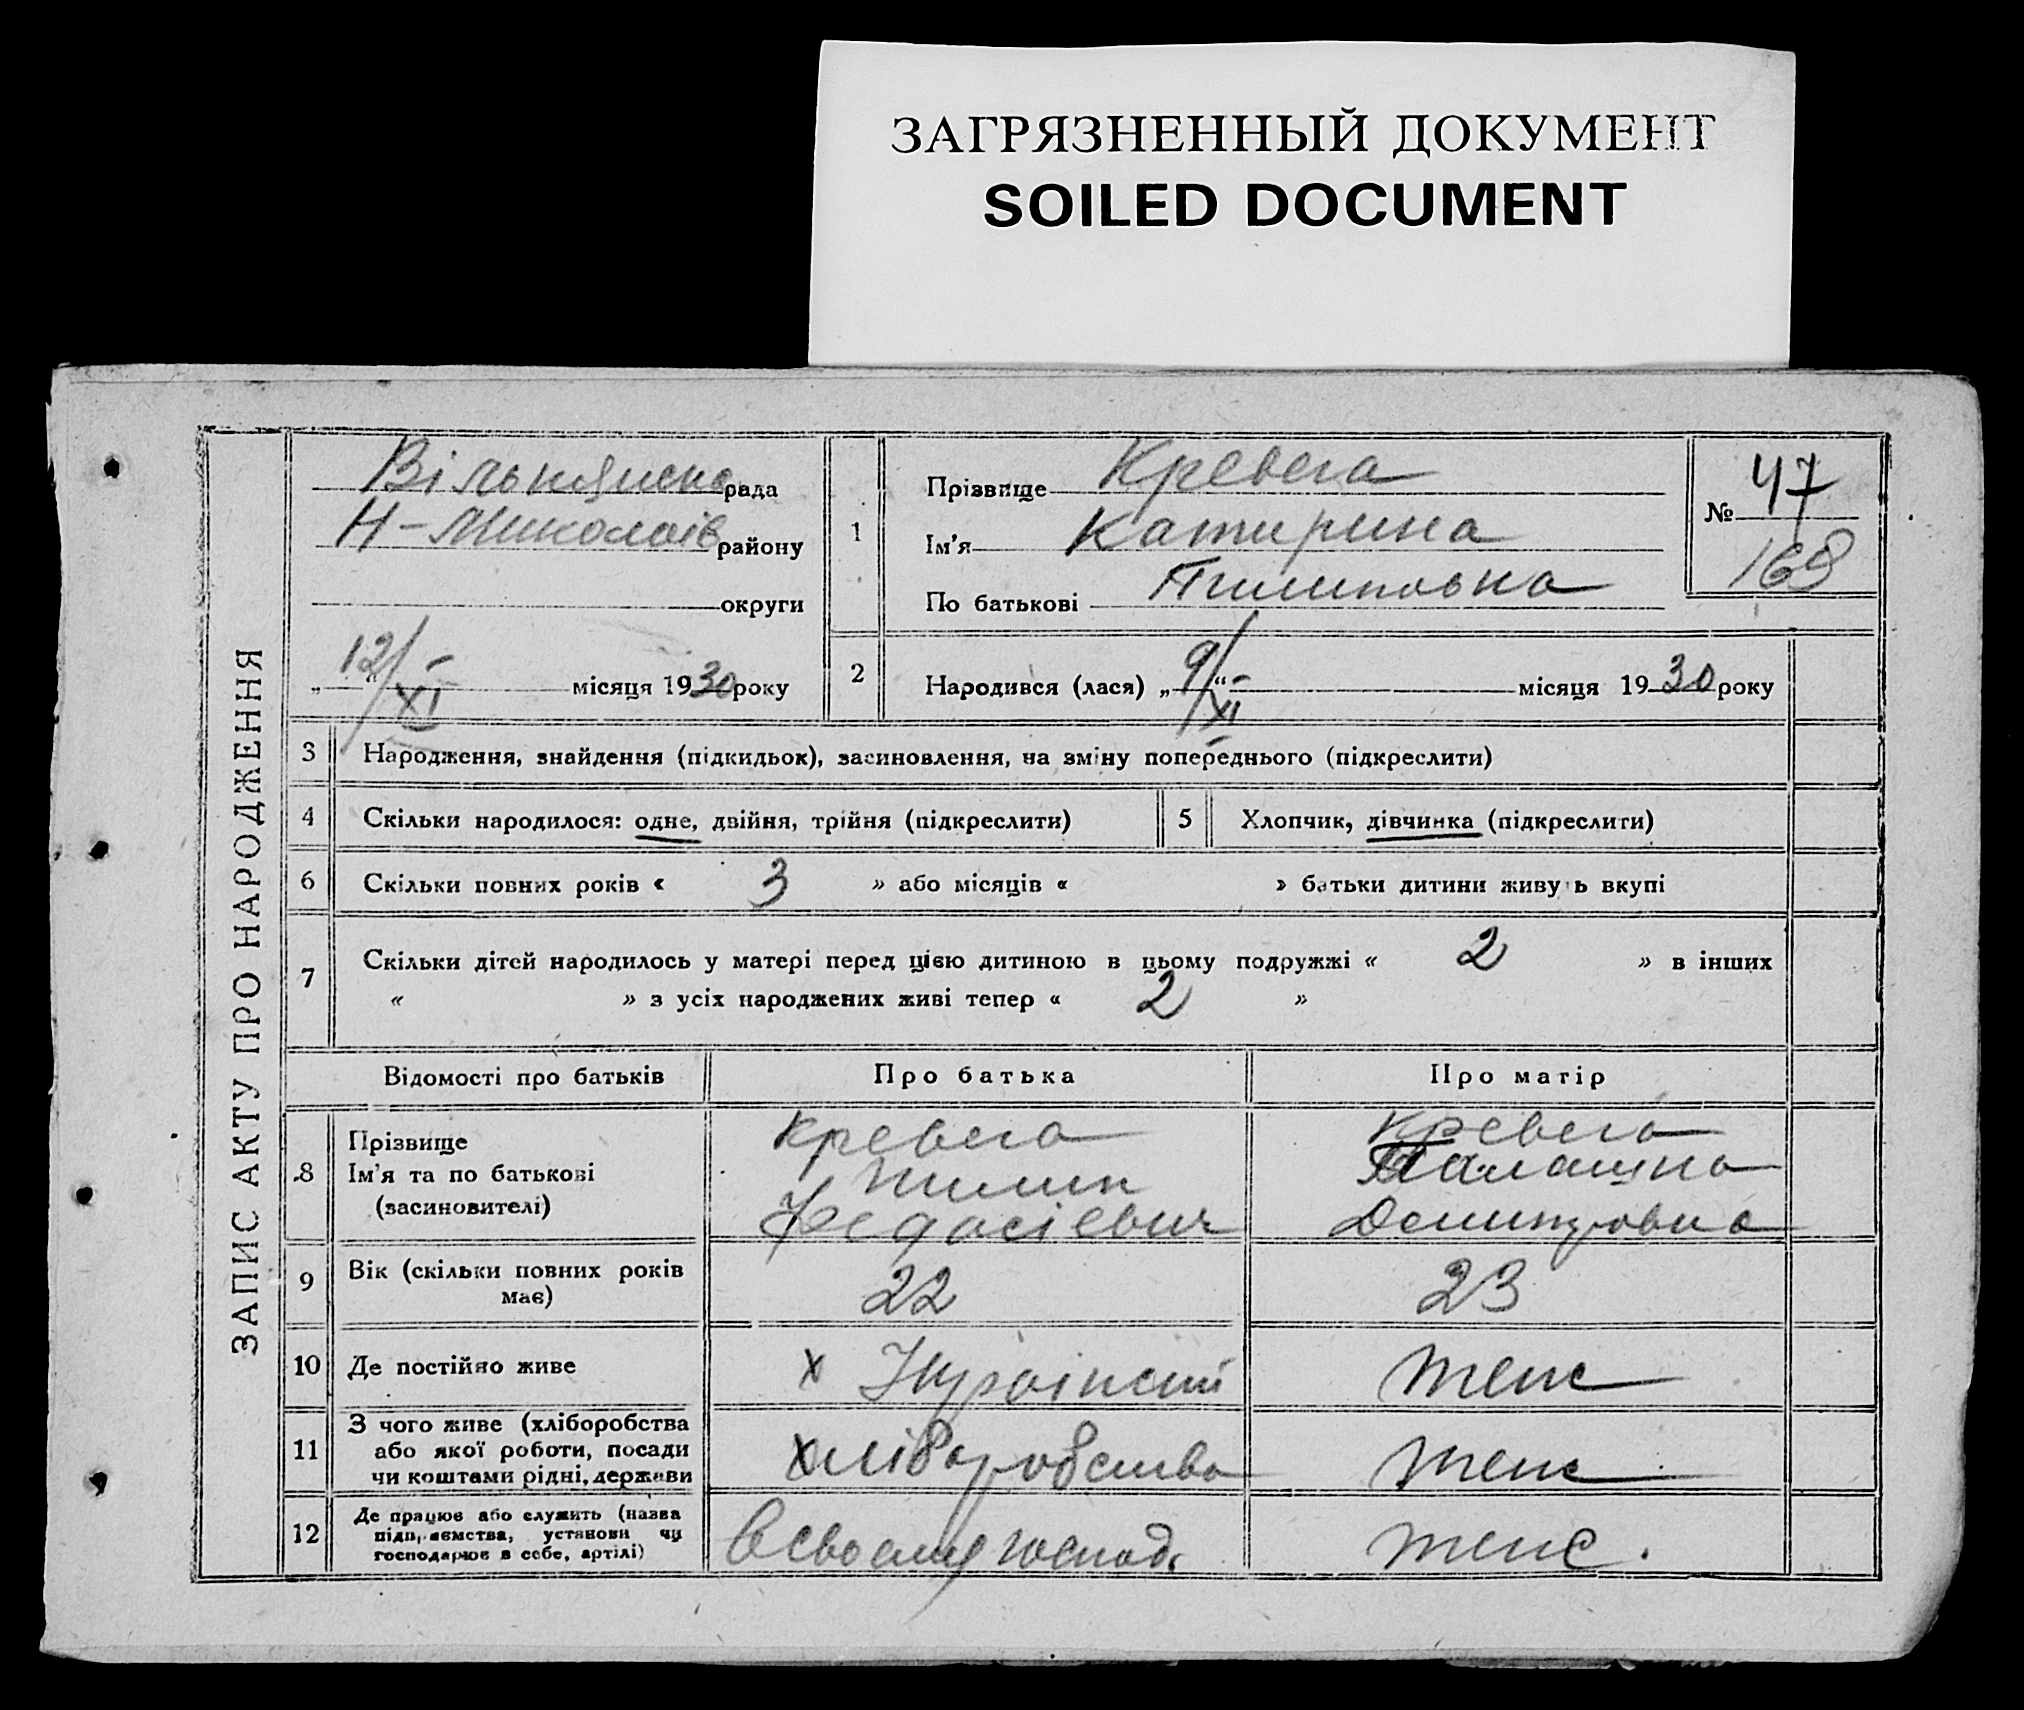 ЗАГРЯЗНЕННЫЙ ДОКУМЕНТ
SOILED DOCUMENT
ЗАПИС АКТУ ПРО НАРОДЖЕННЯ
рада
Н-Миколаїв району
округи
12/XI місяця 1930 року
1
Прізвище Кревега
Ім'я Катирина
По батькові Пилиповна
№ 47
168
2
Народився (лася) „9/XI“ місяця 1930 року
3 Народження, знайдення (підкидьок), засиновлення, на зміну попереднього (підкреслити)
4 Скільки народилося: одне, двійня, трійня (підкреслити)
5 Хлопчик, дівчинка (підкреслити)
6 Скільки повних років « 3 » або місяців « » батьки дитини живуть вкупі
7 Скільки дітей народилось у матері перед цією дитиною в цьому подружжі « 2 » в інших
« » з усіх народжених живі тепер « 2 »
Відомості про батьків Про батька Про матір
8 Прізвище
Ім'я та по батькові
(засиновителі)
Кревега
Пилип
Федосієвич
Кревега
Палашка
Демитровна
9 Вік (скільки повних років
має)
22
23
10 Де постійно живе
х Украінский
теис
11 З чого живе (хліборобства
або якої роботи, посади
чи коштами рідні, держави
хліборобство
теис
12 Де працює або служить (назва
підприємства, установи чи
господарює в себе, артілі)
В своему господ.
теис.